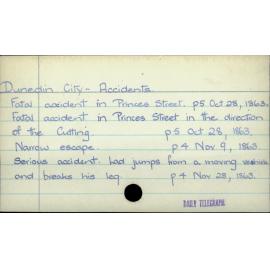 Dunedin City - Accidents.
Fatal accident in Princes Street. p5 Oct 28, 1863.
Fatal accident in Princes Street in the direction
of the Cutting. p5 Oct 28, 1863.
Narrow escape. p4 Nov 9, 1863.
Serious accident. Lad jumps from a moving vehicle
and breaks his leg. p4 Nov 28, 1863.
DAILY TELEGRAPH